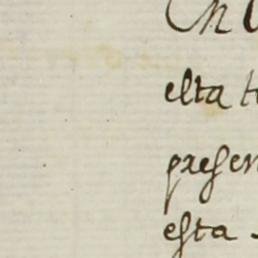 En
esta
presen
esta